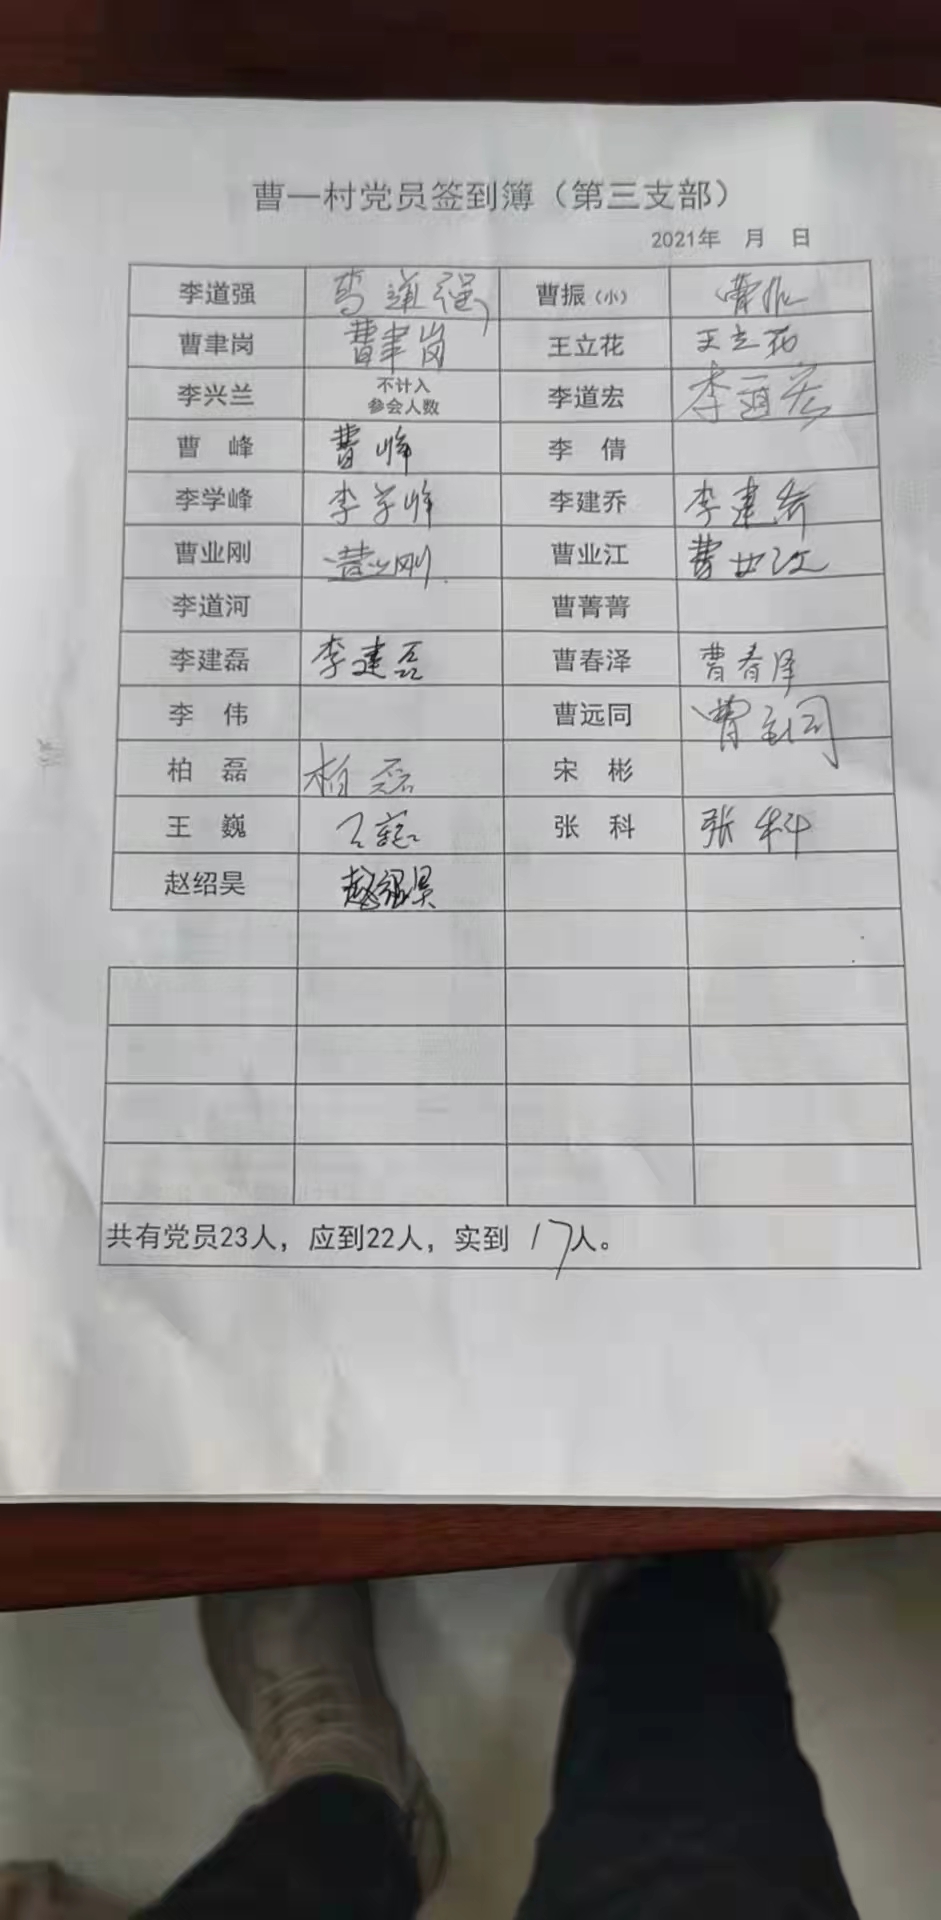 曹一村党员签到簿（第三支部）
2021年 月 日
李道强 李道强 曹振（小） 曹振
曹聿岗 曹聿岗 王立花 王立花
李兴兰 不计入 李道宏 李道宏
参会人数
曹 峰 曹峰 李 倩
李学峰 李学峰 李建乔 李建乔
曹业刚 曹业刚 曹业江 曹业江
李道河 曹菁菁
李建磊 李建磊 曹春泽 曹春泽
李 伟 曹远同 曹远同
柏 磊 柏磊 宋 彬
王 巍 王巍 张 科 张科
赵绍昊 赵绍昊
共有党员23人，应到22人，实到 17人。